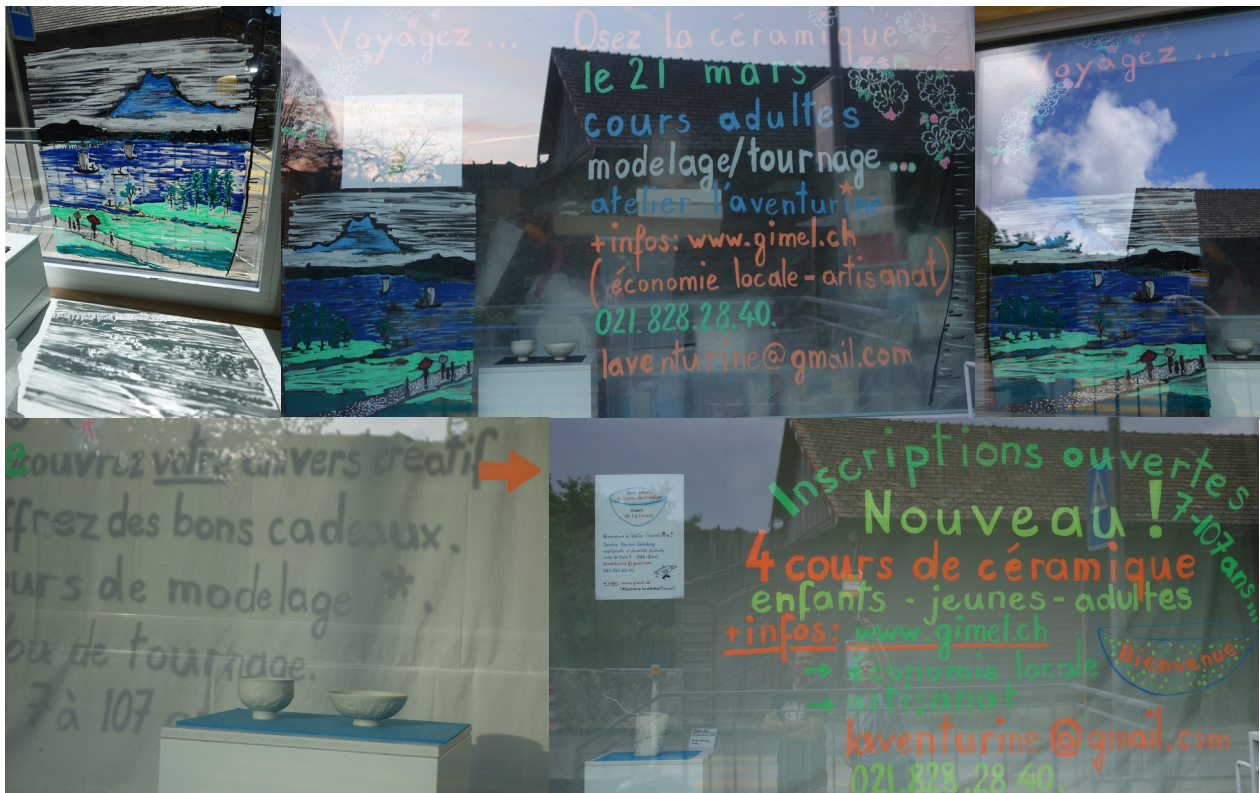 Voyagez ...
Osez la céramique
le 21 mars
cours adultes
modelage/tournage...
atelier l'aventurine
+infos: www.gimel.ch
(économie locale-artisanat)
021.828.28.40.
laventurine@gmail.com
Voyagez ...
couvrez votre univers créatif
frez des bons cadeaux.
urs de modelage *.
ou de tournage.
7 à 107
Inscriptions ouvertes
7-107 ans
Nouveau !
4 cours de céramique
enfants - jeunes - adultes
+infos: www.gimel.ch
→ économie locale
→ artisanat
Bienvenue
laventurine@gmail.com
021.828.28.40.
Bienvenue à l'atelier l'aventurine!
laventurine@gmail.com
+infos: www.gimel.ch